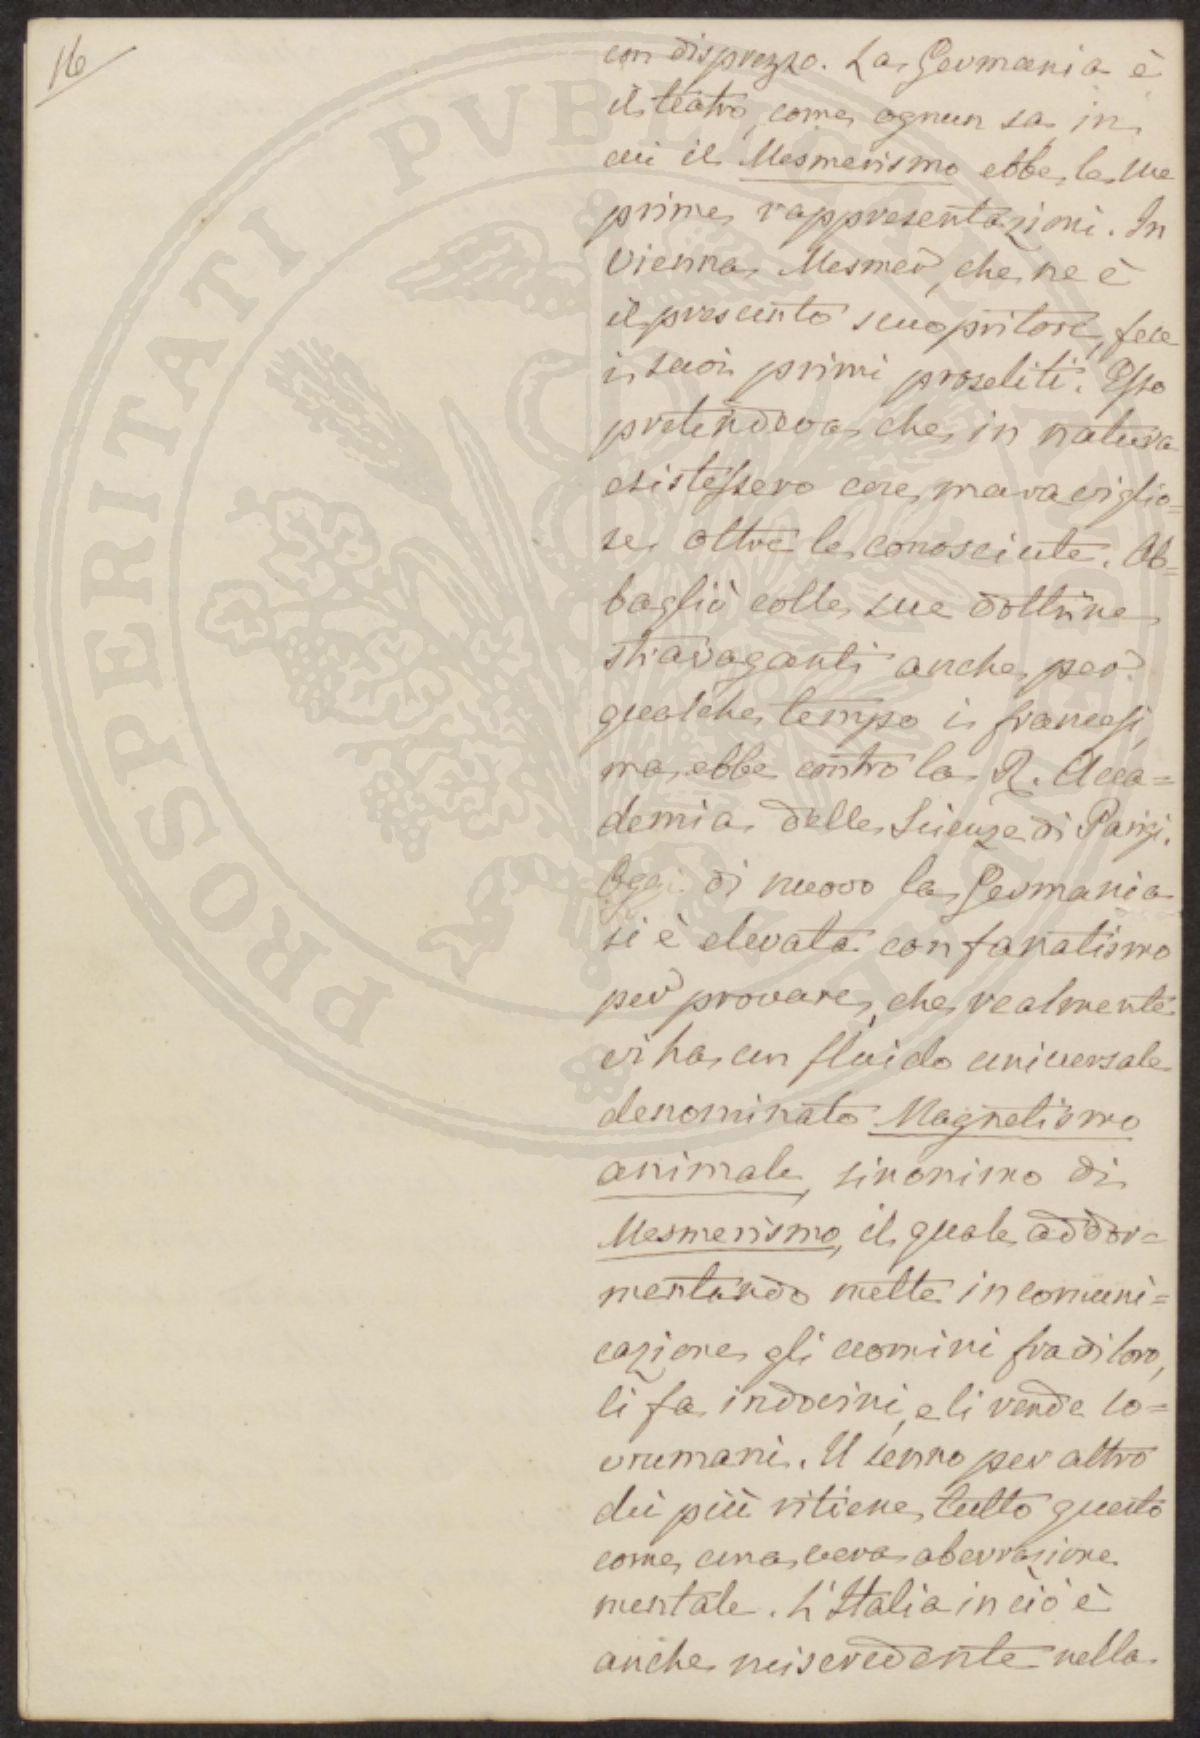 16
con disprezzo. La Germania è
il teatro, come ognun sa, in
cui il Mesmerismo ebbe le sue
prime rappresentazioni. In
Vienna Mesmer, che ne è
il presunto scuopritore, fece
i suoi primi proseliti. Esso
pretendeva che in natura
esistessero cose maraviglio=
se oltre le conosciute. Ab=
bagliò colle sue dottrine
stravaganti anche per
qualche tempo i francesi,
ma ebbe contro la R. Acca=
demia delle Scienze di Parigi.
Oggi di nuovo la Germania
si è elevata con fanatismo
per provare, che realmente
vi ha un fluido universale
denominato Magnetismo
animale, sinonimo di
Mesmerismo, il quale addor=
mentando mette in comuni=
cazione gli uomini fra di loro,
li fa indovini, e li rende so=
vrumani. Il senno per altro
dei più ritiene tutto questo
come una vera aberrazione
mentale. L'Italia in ciò è
anche miscredente nella
PROSPERITATI PUBLICAE